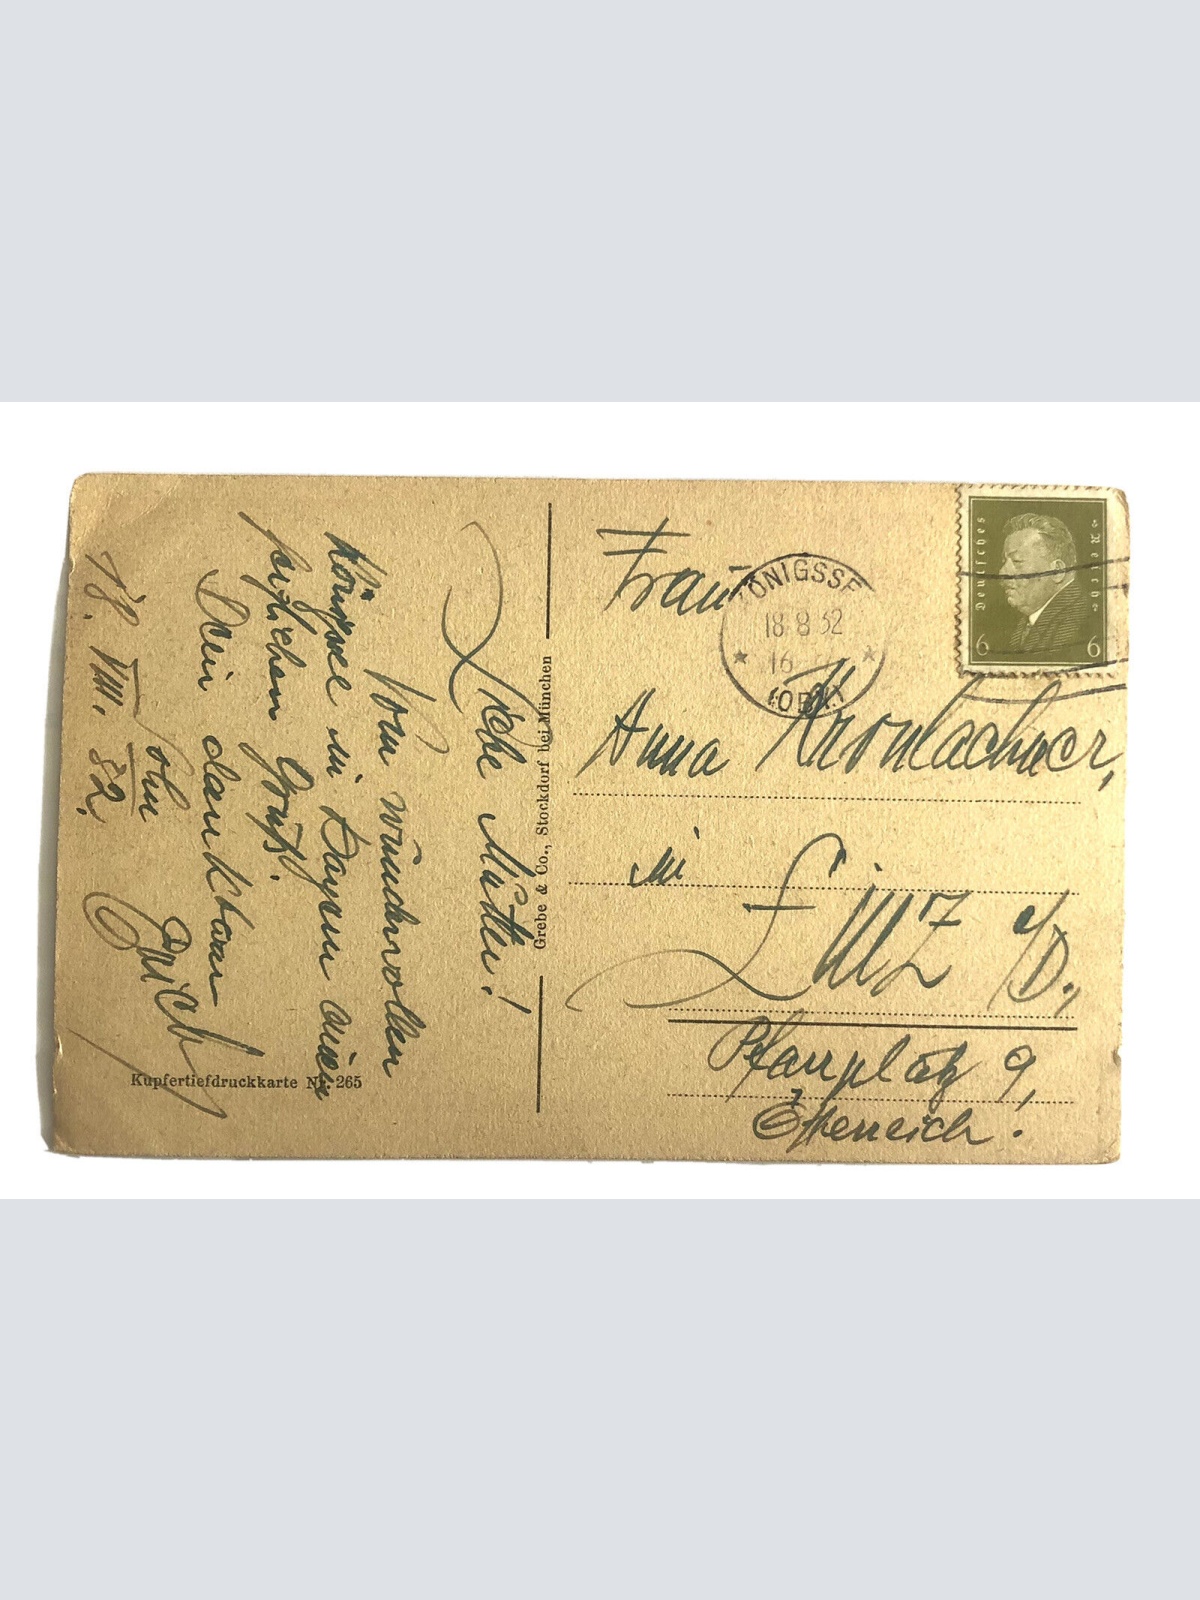 Liebe Mutter!
Vom wundervollen
Königssee in Bayern einen
herzlichen Gruß!
Dein dankbarer
Sohn
Erich
18. VIII. 32.
Grebe & Co., Stockdorf bei München
Kupfertiefdruckkarte Nr. 265
Deutsches Reich
6 6
KÖNIGSSE
18 8 32
16
Frau
Anna
in
Linz a/D.,
Pfarrplatz 9,
Österreich.